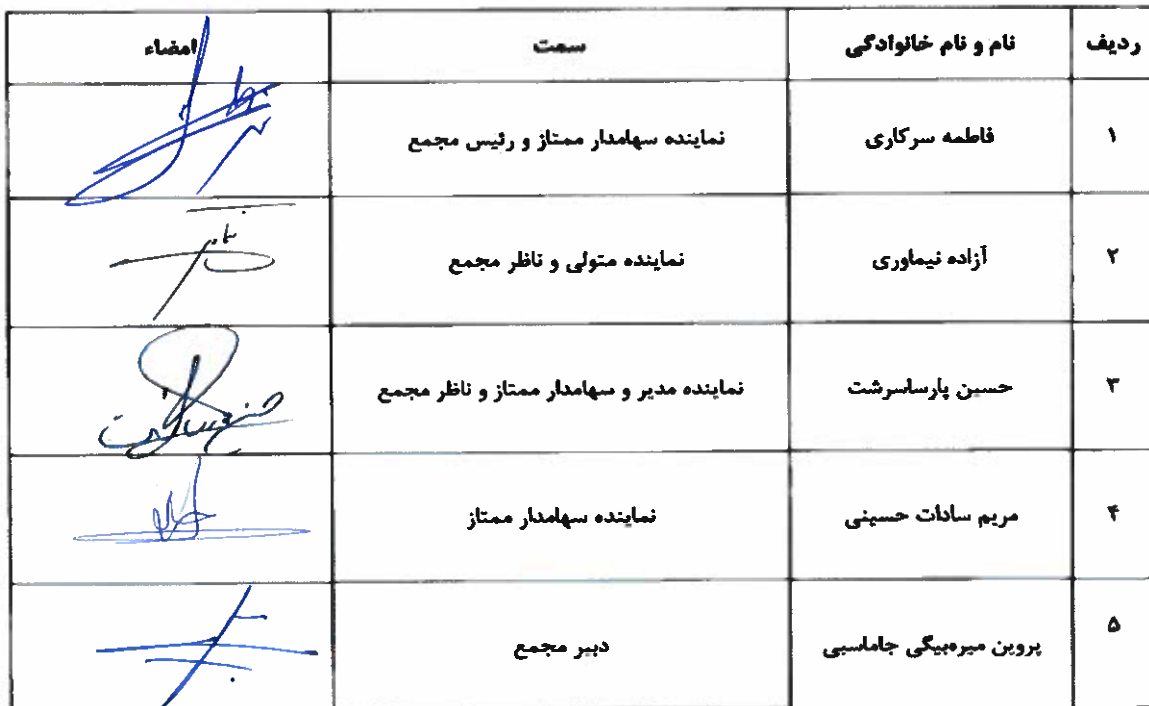 ردیف نام و نام خانوادگی سمت امضاء
۱ فاطمه سرکاری نماینده سهامدار ممتاز و رئیس مجمع
۲ آزاده نیماوری نماینده متولی و ناظر مجمع
۳ حسین پارساسرشت نماینده مدیر و سهامدار ممتاز و ناظر مجمع
۴ مریم سادات حسینی نماینده سهامدار ممتاز
۵ پروین میره‌بیگی جاماسبی دبیر مجمع